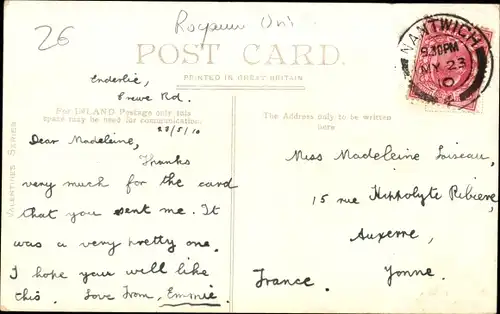 26
Royaume Uni
POST CARD.
PRINTED IN GREAT BRITAIN
NANTWICH
9.30PM
MY 23
10
Enderlie,
Crewe Rd.
For INLAND Postage only this
space may be used for communication.
23/5/10
The Address only to be written
here
VALENTINES SERIES
Dear Madeleine,
Thanks
very much for the card
that you sent me. It
was a very pretty one.
I hope you will like
this. Love From, Emmie.
Miss Madeleine Loiseau,
15 rue Hippolyte Ribière,
Auxerre,
Yonne.
France.